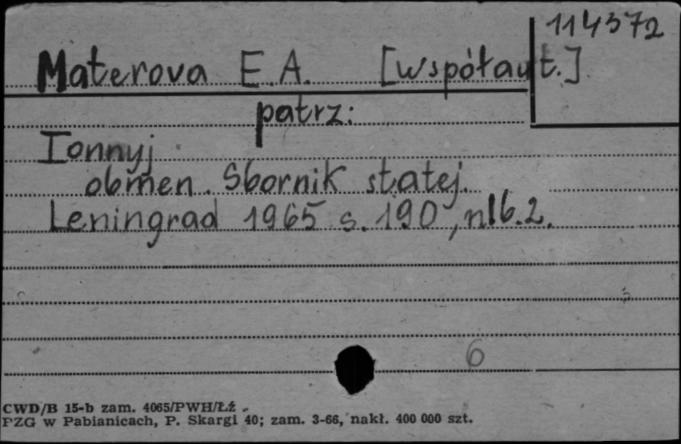 114372
Materova E.A. [współaut.]
patrz:
Ionnyj
obmen. Sbornik statej.
Leningrad 1965 s. 190, nlb. 2.
6
CWD/B 15-b zam. 4065/PWH/Łź
PZG w Pabianicach, P. Skargi 40; zam. 3-66, nakł. 400 000 szt.